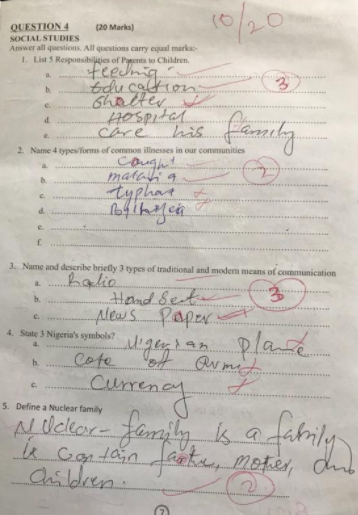 10/20
QUESTION 4 (20 Marks)
SOCIAL STUDIES
Answer all questions. All questions carry equal marks:-
1. List 5 Responsibilities of Parents to Children.
a. feeding
b. Education
c. Shelter
d. Hospital
e. care his family
3
2. Name 4 types/forms of common illnesses in our communities
a. Cought
b. malaria
c.
d.
e.
f.
2
3. Name and describe briefly 3 types of traditional and modern means of communication
a. Radio
b. Hand Set
c. News Paper
3
4. State 3 Nigeria's symbols?
a. Nigerian Plane
b. Cote of Arm
c. Currency
5. Define a Nuclear family
Nuclear-family is a family
is contain father, mother, and
children.
2